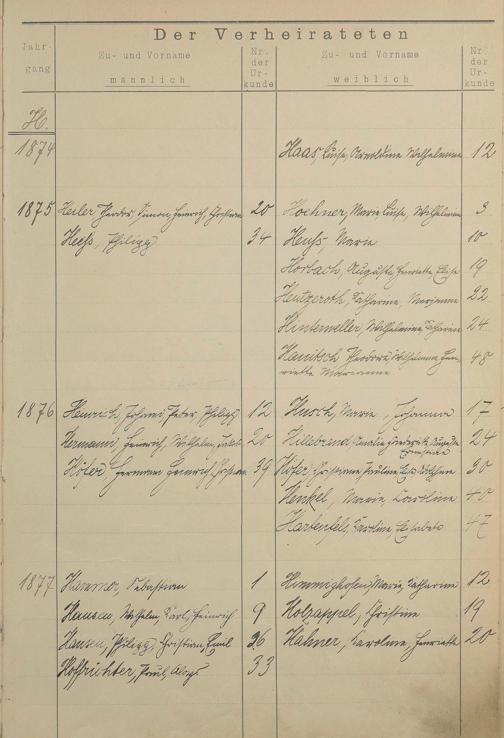 Der Verheirateten
Jahr-
gang
Zu- und Vorname
männlich
Nr.
der
Ur-
kunde
Zu- und Vorname
weiblich
Nr.
der
Ur-
kunde
H.
1874 Haas, Luise, Wilhelmine 12
1875 Heiler, Theodor, Simon, Heinrich, Christian 20 Hochner, Marie Luise, Wilhelmine 3
Heeß, Philipp 34 Heuss, Marie 10
Horbach, Auguste, Henriette, Elise 19
Heutzeroth, Katharine, Marianne 22
Hinterweller, Wilhelmine, Katharine 24
Hanitsch, Theodore, Wilhelmine, Hen- 48
riette Marianne
1876 Heinrich, Johann, Peter, Philipp 12 Husch, Marie, Johanna 17
Hermann, Heinrich, Wilhelm, Jakob 20 Hillebrand, Amalie, Friederike, Auguste 24
Christiane
Höfer, Hermann, Heinrich, Christian 39 Höfer, Christiane, Pauline 30
Henkel, Marie, Caroline 40
Hartenfels, Karoline, Elisabeth 47
1877 Hammer, Sebastian 1 Himmighofen, Marie, Katharine 12
Hansen, Wilhelm, Karl, Heinrich 9 Holzappel, Christine 19
Hansen, Philipp, Christian, Emil 26 Hahner, Karoline, Henriette 20
Hoffrichter, Paul, Aloys 33